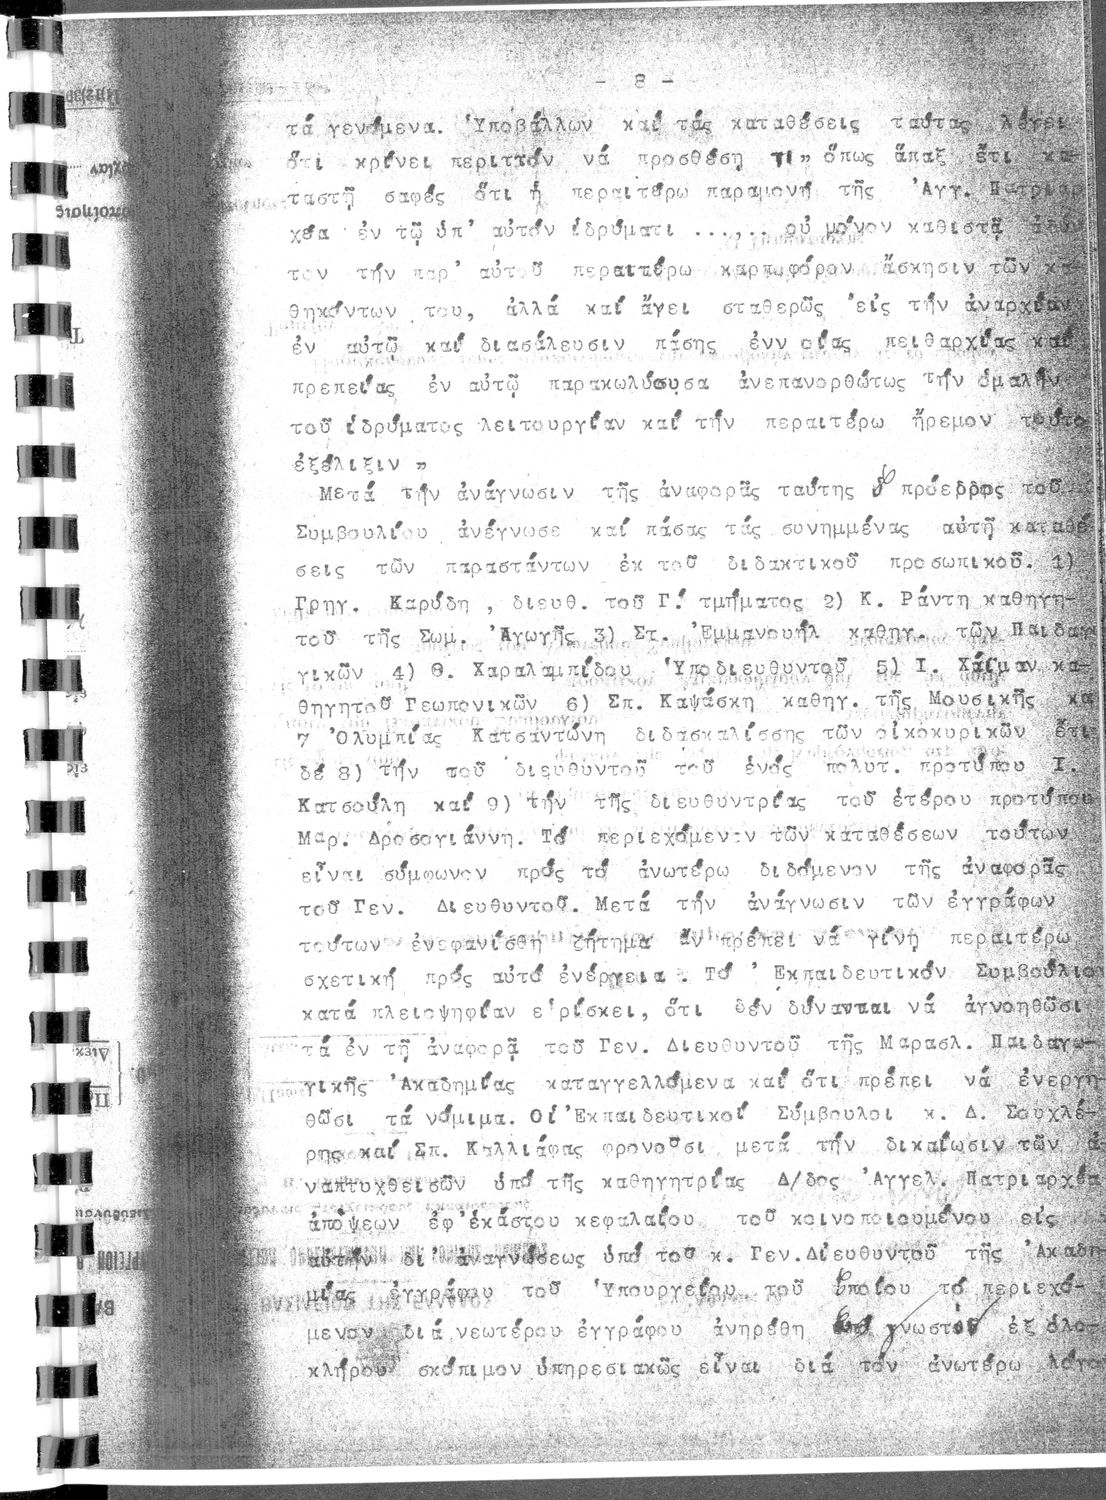 - 8 -
τά γενόμενα. Ὑποβάλλων καί τάς καταθέσεις ταύτας λέγει
ὅτι κρίνει περιττόν νά προσθέσῃ τι " ὅπως ἅπαξ ἔτι κα-
ταστῇ σαφές ὅτι ἡ περαιτέρω παραμονή τῆς Ἀγγ. Πατριαρ
χέα ἐν τῷ ὑπ' αὐτόν ἱδρύματι ...,.. οὐ μόνον καθιστᾷ ἀδύν
τον τήν παρ' αὐτοῦ περαιτέρω καρποφόρον ἄσκησιν τῶν κα-
θηκόντων του, ἀλλά καί ἄγει σταθερῶς εἰς τήν ἀναρχίαν
ἐν αὐτῷ καί διασάλευσιν πάσης ἐνν οίας πειθαρχίας καί
πρεπείας ἐν αὐτῷ παρακωλύουσα ἀνεπανορθώτως τήν ὁμαλήν
τοῦ ἱδρύματος λειτουργίαν καί τήν περαιτέρω ἤρεμον τούτο
ἐξέλιξιν "
Μετά τήν ἀνάγνωσιν τῆς ἀναφορᾶς ταύτης ὁ πρόεδρος τοῦ
Συμβουλίου ἀνέγνωσε καί πάσας τάς συνημμένας αὐτῇ καταθέ
σεις τῶν παραστάντων ἐκ τοῦ διδακτικοῦ προσωπικοῦ. 1)
Γρηγ. Καρύδη , διευθ. τοῦ Γ.' τμήματος 2) Κ. Ράντη καθηγη-
τοῦ τῆς Σωμ. Ἀγωγῆς 3) Στ. Ἐμμανουήλ καθηγ. τῶν Παιδαγω
γικῶν 4) Θ. Χαραλαμπίδου Ὑποδιευθυντοῦ 5) Ι. Χάϊμαν κα-
θηγητοῦ Γεωπονικῶν 6) Σπ. Καψάσκη καθηγ. τῆς Μουσικῆς κα
7 Ὀλυμπίας Κατσαντώνη διδασκαλίσσης τῶν οἰκοκυρικῶν ἔτι
δέ 8) τήν τοῦ διευθυντοῦ τοῦ ἑνός πολυτ. προτύπου Ι.
Κατσούλη καί 9) τήν τῆς διευθυντρίας τοῦ ἑτέρου προτύπου
Μαρ. Δροσογιάννη. Τό περιεχόμενον τῶν καταθέσεων τούτων
εἶναι σύμφωνον πρός τό ἀνωτέρω διδόμενον τῆς ἀναφορᾶς
τοῦ Γεν. Διευθυντοῦ. Μετά τήν ἀνάγνωσιν τῶν ἐγγράφων
τούτων ἐνεφανίσθη ζήτημα ἄν πρέπει νά γίνῃ περαιτέρω
σχετική πρός αὐτό ἐνέργεια . Τό Ἐκπαιδευτικόν Συμβούλιο
κατά πλειοψηφίαν εὑρίσκει, ὅτι δέν δύνανται νά ἀγνοηθῶσι
τά ἐν τῇ ἀναφορᾷ τοῦ Γεν. Διευθυντοῦ τῆς Μαρασλ. Παιδαγω-
γικῆς Ἀκαδημίας καταγγελλόμενα καί ὅτι πρέπει νά ἐνεργη
θῶσι τά νόμιμα. Οἱ Ἐκπαιδευτικοί Σύμβουλοι κ. Δ. Σουχλέ-
ρης καί Σπ. Καλλιάφας φρονοῦσι μετά τήν δικαίωσιν τῶν ἀ
ναπτυχθεισῶν ὑπό τῆς καθηγητρίας Δ/δος Ἀγγελ. Πατριαρχέα
ἀπόψεων ἐφ' ἑκάστου κεφαλαίου τοῦ κοινοποιουμένου εἰς
αὐτήν δι' ἀναγνώσεως ὑπό τοῦ κ. Γεν. Διευθυντοῦ τῆς Ἀκαδη
μίας ἐγγράφου τοῦ Ὑπουργείου τοῦ ὁποίου τό περιεχό-
μενον διά νεωτέρου ἐγγράφου ἀνηρέθη γνωστόν ἐξ ὁλο-
κλήρου σκόπιμον ὑπηρεσιακῶς εἶναι διά τόν ἀνωτέρω λόγο